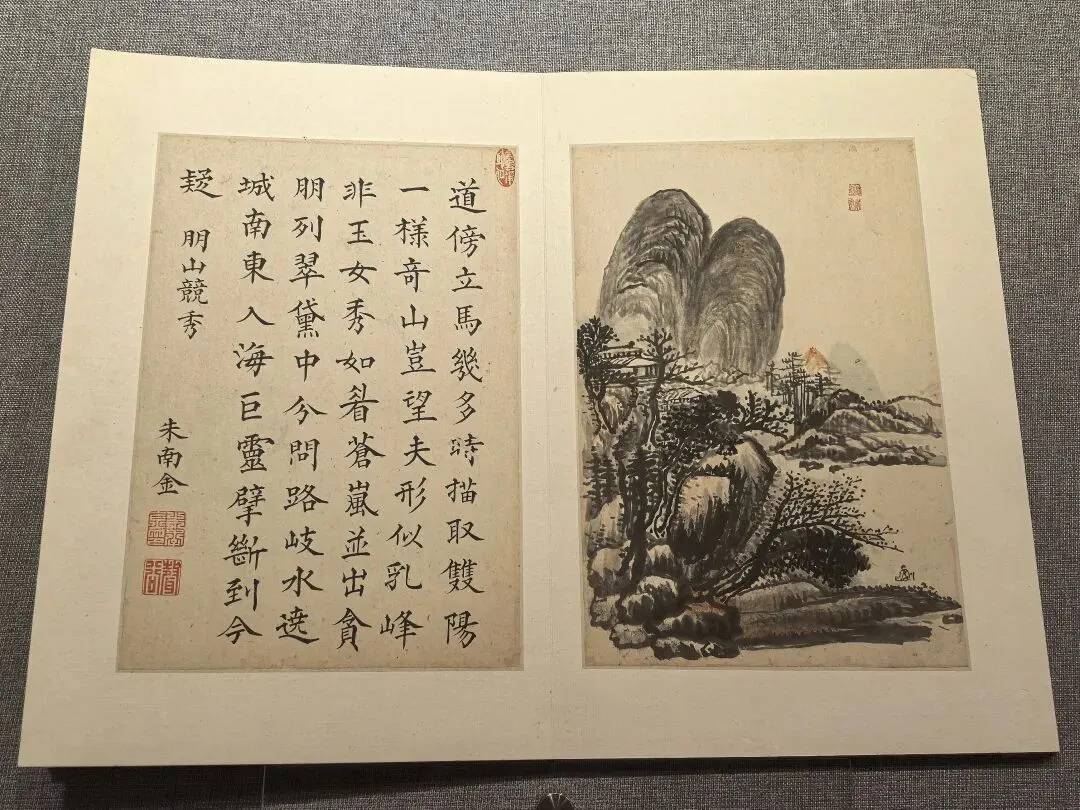 道傍立馬幾多時描取雙陽
一樣奇山豈望夫形似乳峰
非玉女秀如眉蒼嵐並出貪
朋列翠黛中分問路岐水遶
城南東入海巨靈擘斷到今
疑 明山競秀
朱南金